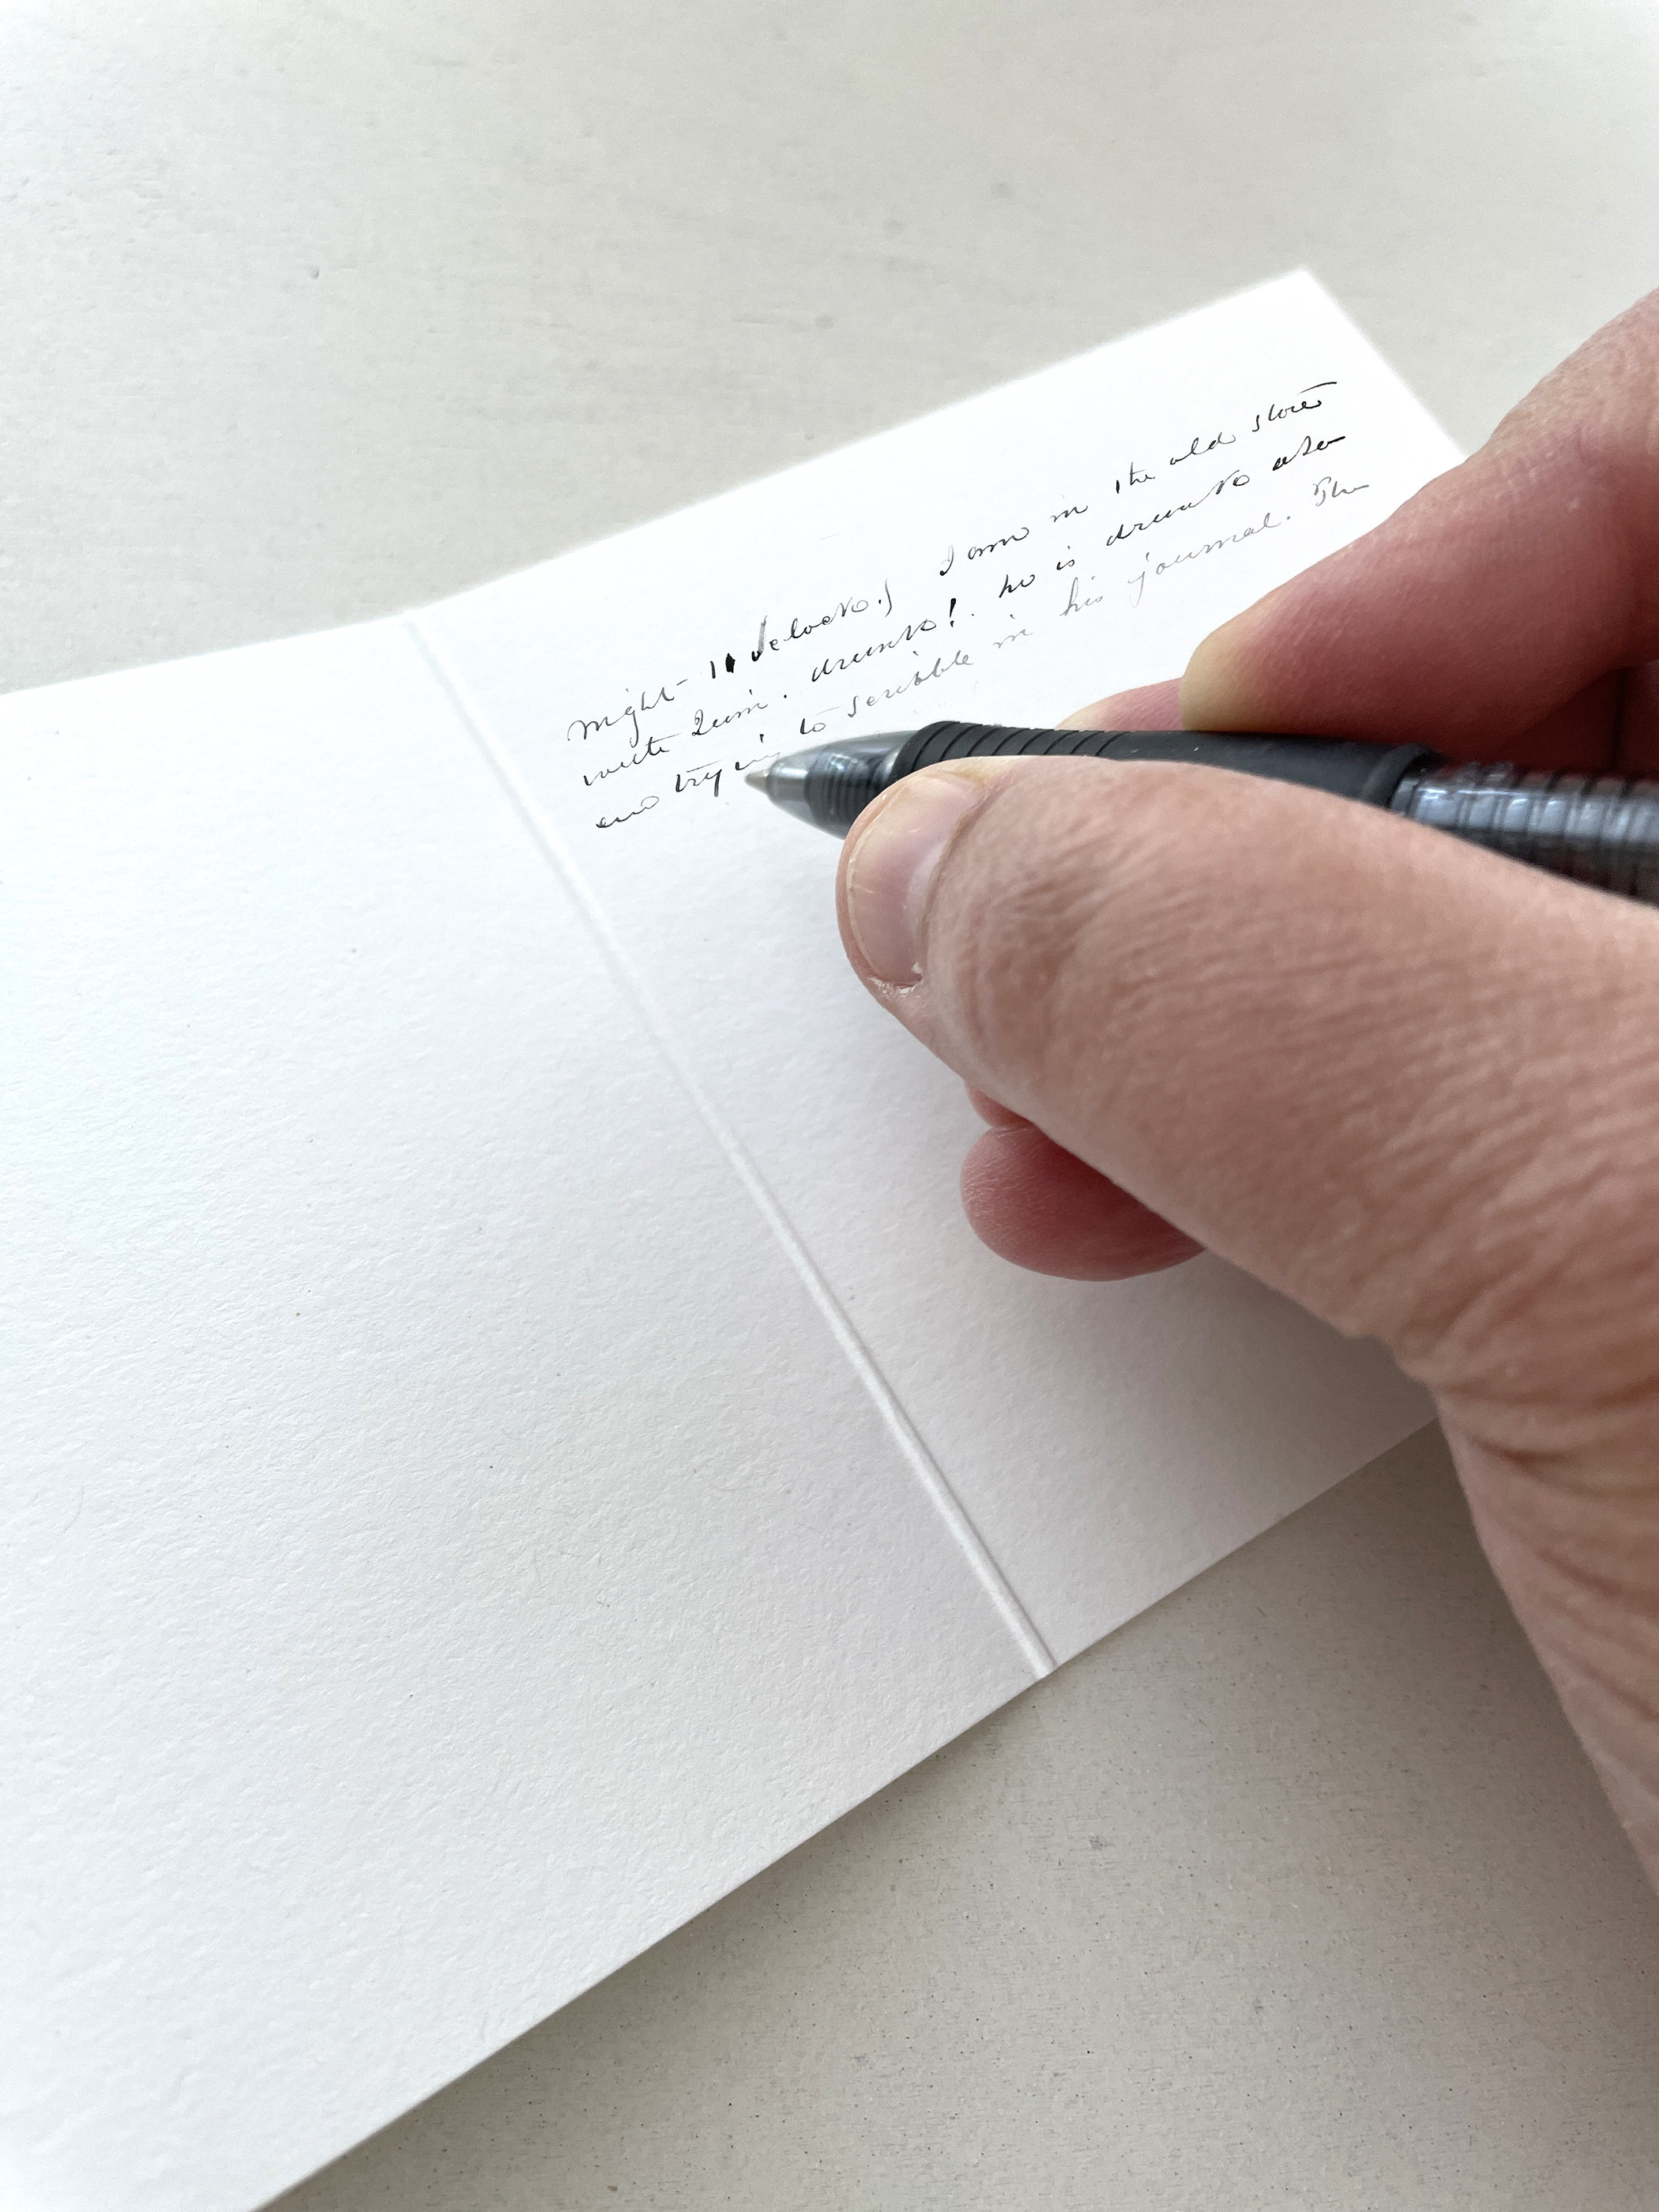 night - 11 oclock.) I am in the old store
with Quin. drunk! he is drunk also
and trying to scribble in his journal. The